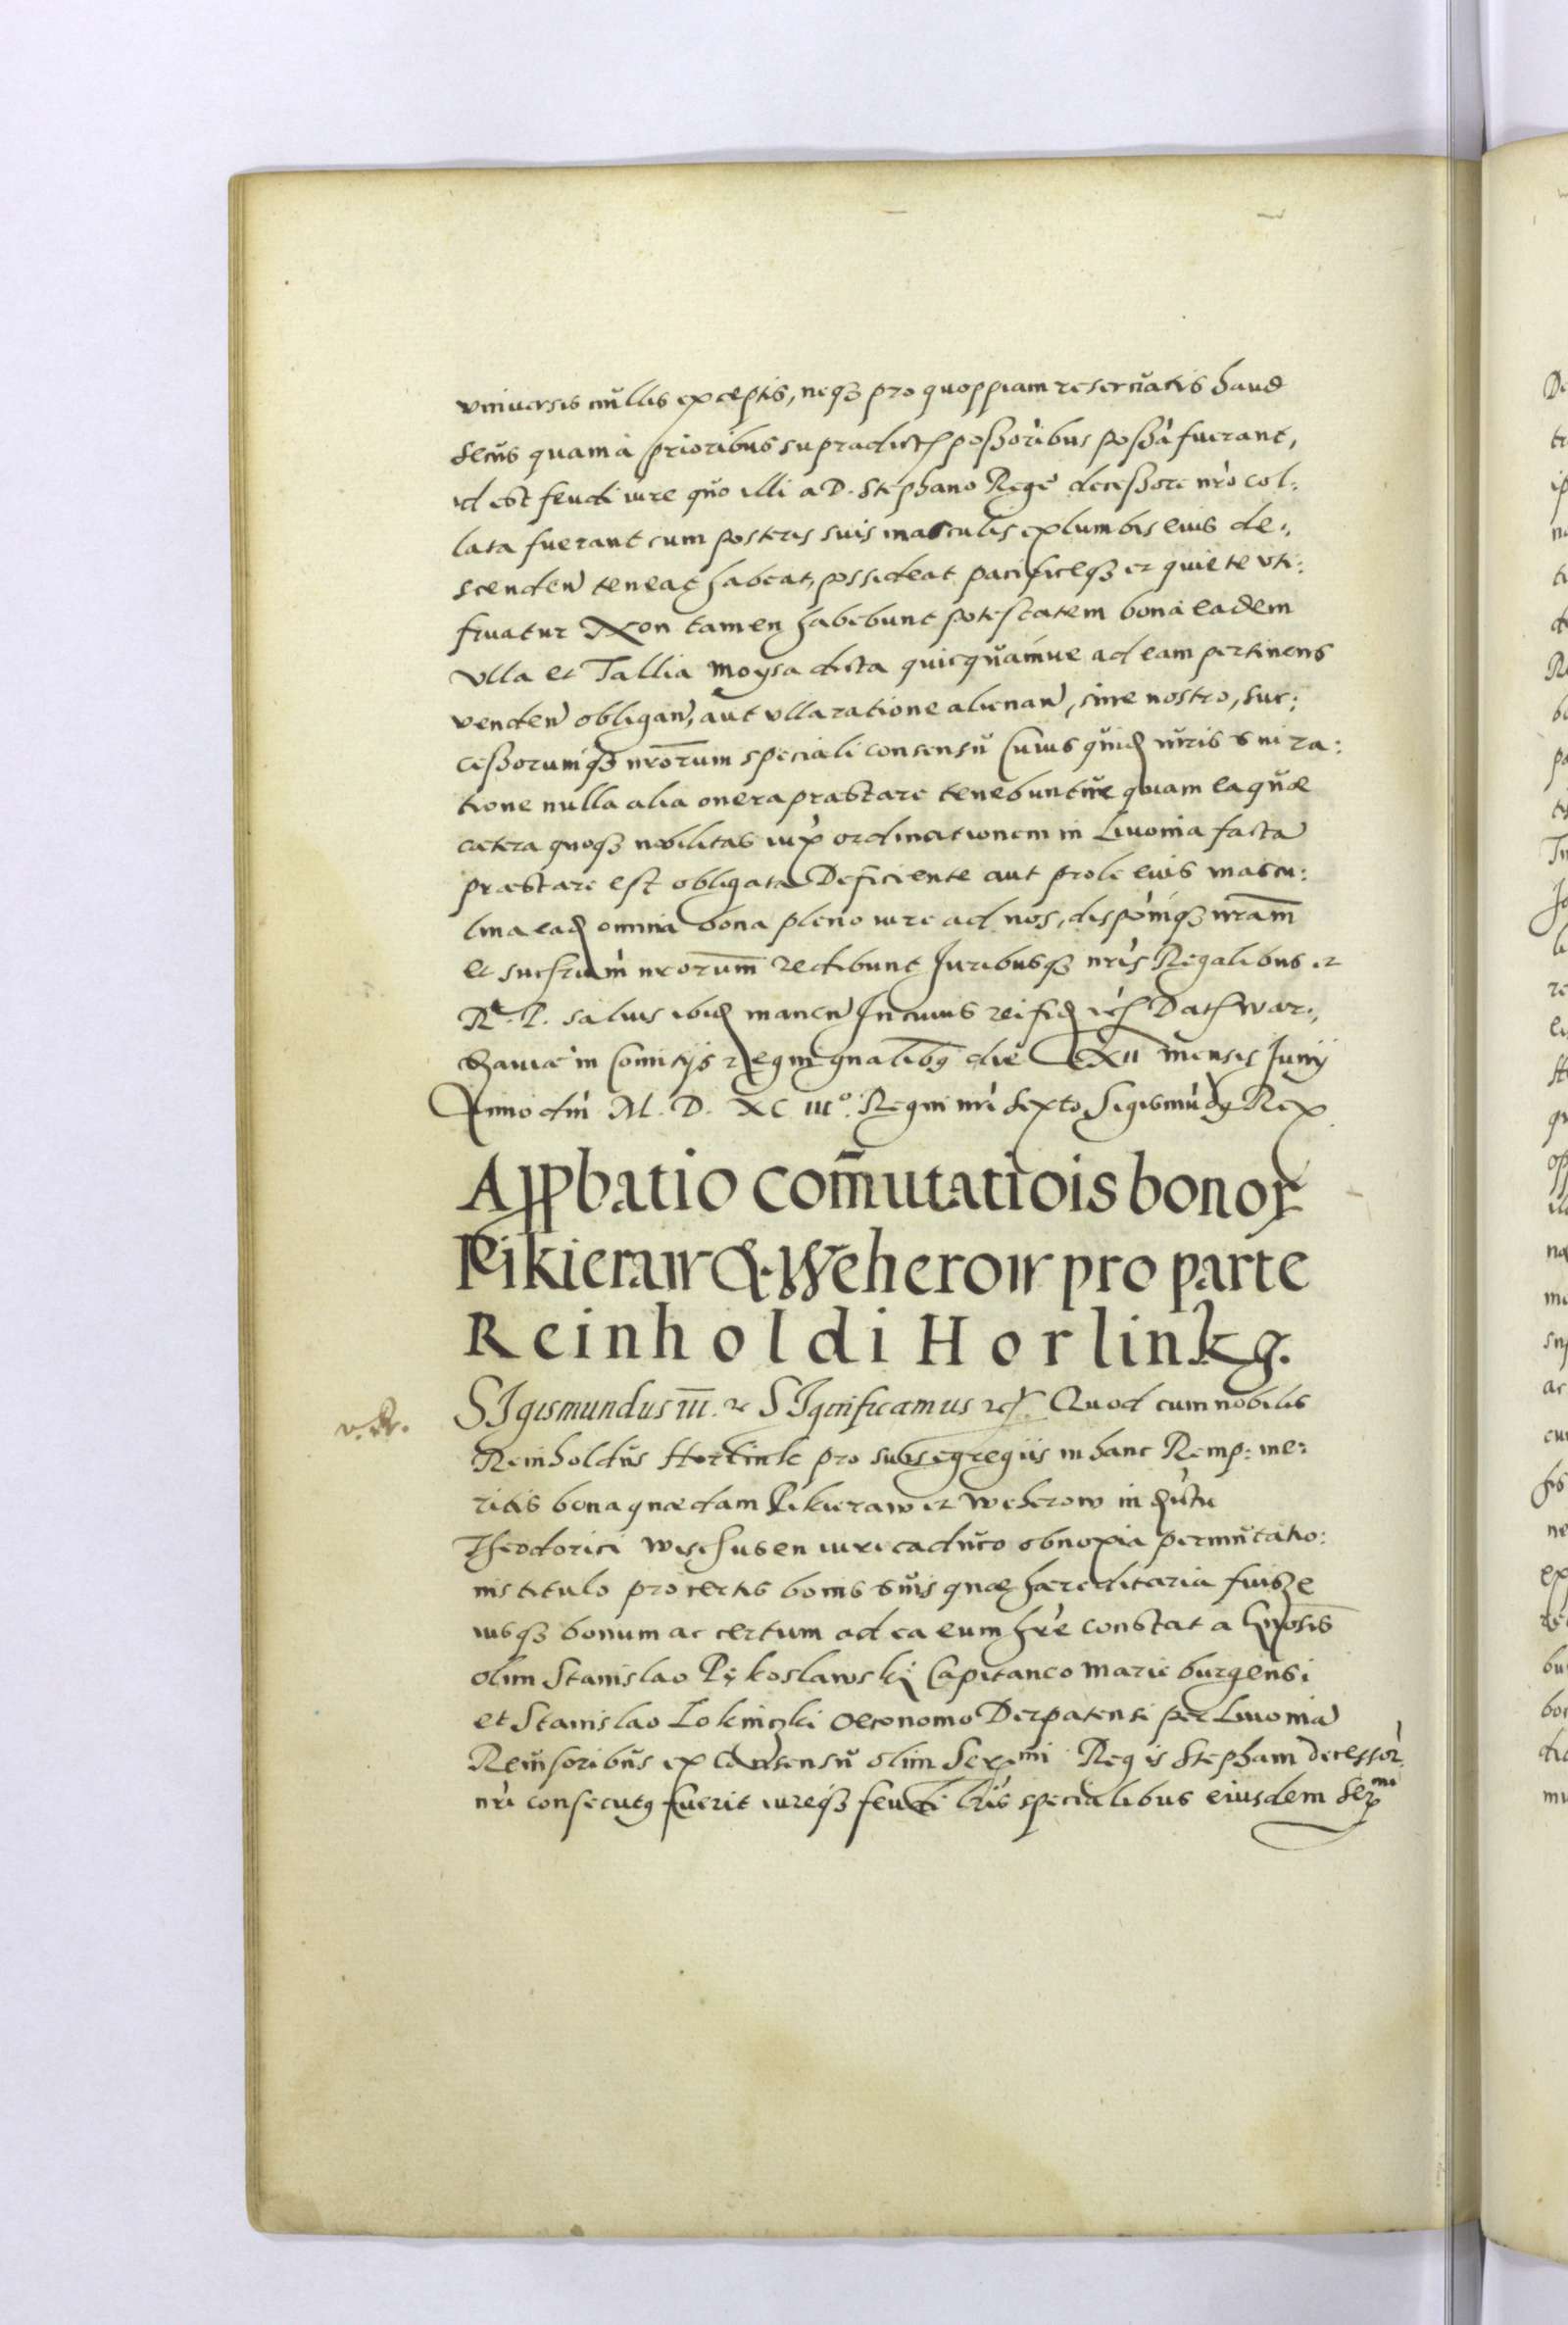 vniuersis nullis exceptis, neqȝ pro quoppiam reseruatis haud
secus quam a prioribus supradict possoribus possa fuerant,
id est feudi iure quo illi a D. Stephano Rege decessore nro col:
lata fuerant cum posteris suis masculis ex lumbis eius de:
scenden teneat habeat, possideat pacificeqȝ et quiete vti:
fruatur Non tamen habebunt potestatem bona eadem
Vlla et Tallia moysa dicta quicquamue ad eam pertinens
venden obligan, aut vlla ratione alienan, sine nostro, suc:
cessorumqȝ nrorum speciali consensu Cuius quid iuris sui ra:
tione nulla alia onera praestare tenebuntur quam ea quae
caetera quoqȝ nobilitas iux ordinationem in Liuonia facta
praestare est obligata Deficiente aut prole eius mascu:
lina ead omnia bona pleno iure ad nos, disponiqȝ nram
et succrum nrorum redibunt Juribusqȝ nris Regalibus et
R. P. saluis ibid manen In cuius rei fid etc Dat War:
shauiae in Comitijs regni gnalibꝫ die XII mensis Junij
Anno dni M. D. XC IIIº. Regni nri sexto Sigismudꝫ Rex
Appbatio com̄utatiois bonoꝝ
Pikieraw & Weherow pro parte
Reinholdi Horlinkg.
SIgismundus III. etc SIgnificamus etc. Quod cum nobilis
Reinholdus Horlink pro suis egregiis in hanc Remp: me:
ritis bona quaedam Pikieraw et Weherow in
Theodorici Wischusen iure caduco obnoxia permutatio:
nis titulo pro certis bonis suis quae haereditaria fuisse
iusqȝ bonum ac certum ad ea eum hre constat a Gnosis
olim Stanislao Pękoslawski Capitaneo Marieburgensi
et Stanislao Lokniczki Oeconomo Derpatensi per Liuonia
Reuisoribus ex consensu olim Sermi Regis Stephani decessor
nri consecutꝫ fuerit iureqȝ feudi lris specialibus eiusdem Sermi